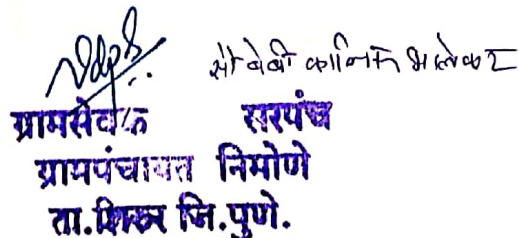 सौ बेबी
ग्रामसेवक सरपंच
ग्रामपंचायत निमोणे
ता.शिरूर जि.पुणे.